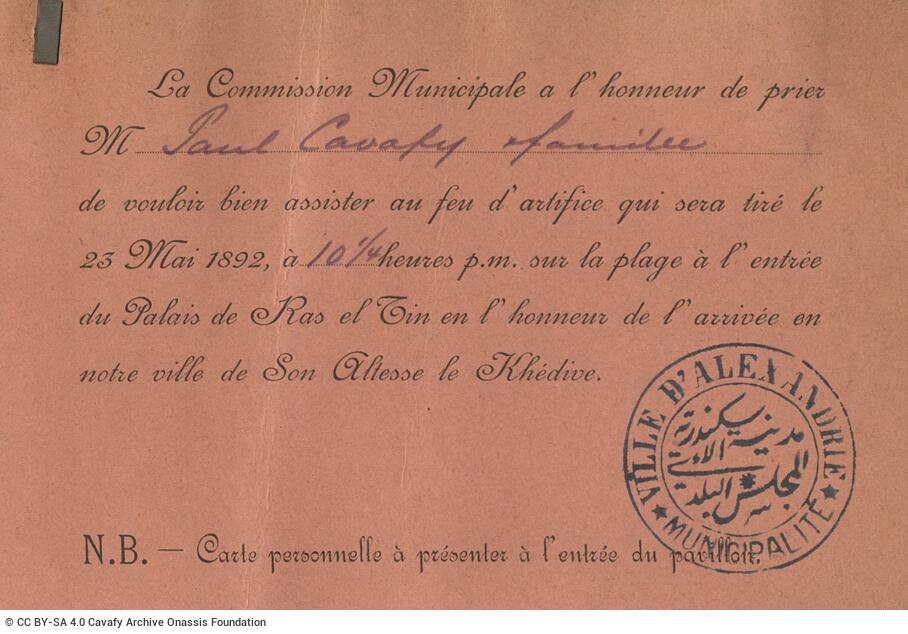 La Commission Municipale a l'honneur de prier
M Paul Cavafy & famille
de vouloir bien assister au feu d'artifice qui sera tiré le
23 Mai 1892, à 10 1/4 heures p.m. sur la plage à l'entrée
du Palais de Ras el Tin en l'honneur de l'arrivée en
notre ville de Son Altesse le Khédive.
VILLE D'ALEXANDRIE
مدينة سكندرية
المجلس البلدى
MUNICIPALITÉ
N.B. — Carte personnelle à présenter à l'entrée du pavillon.
© CC BY-SA 4.0 Cavafy Archive Onassis Foundation